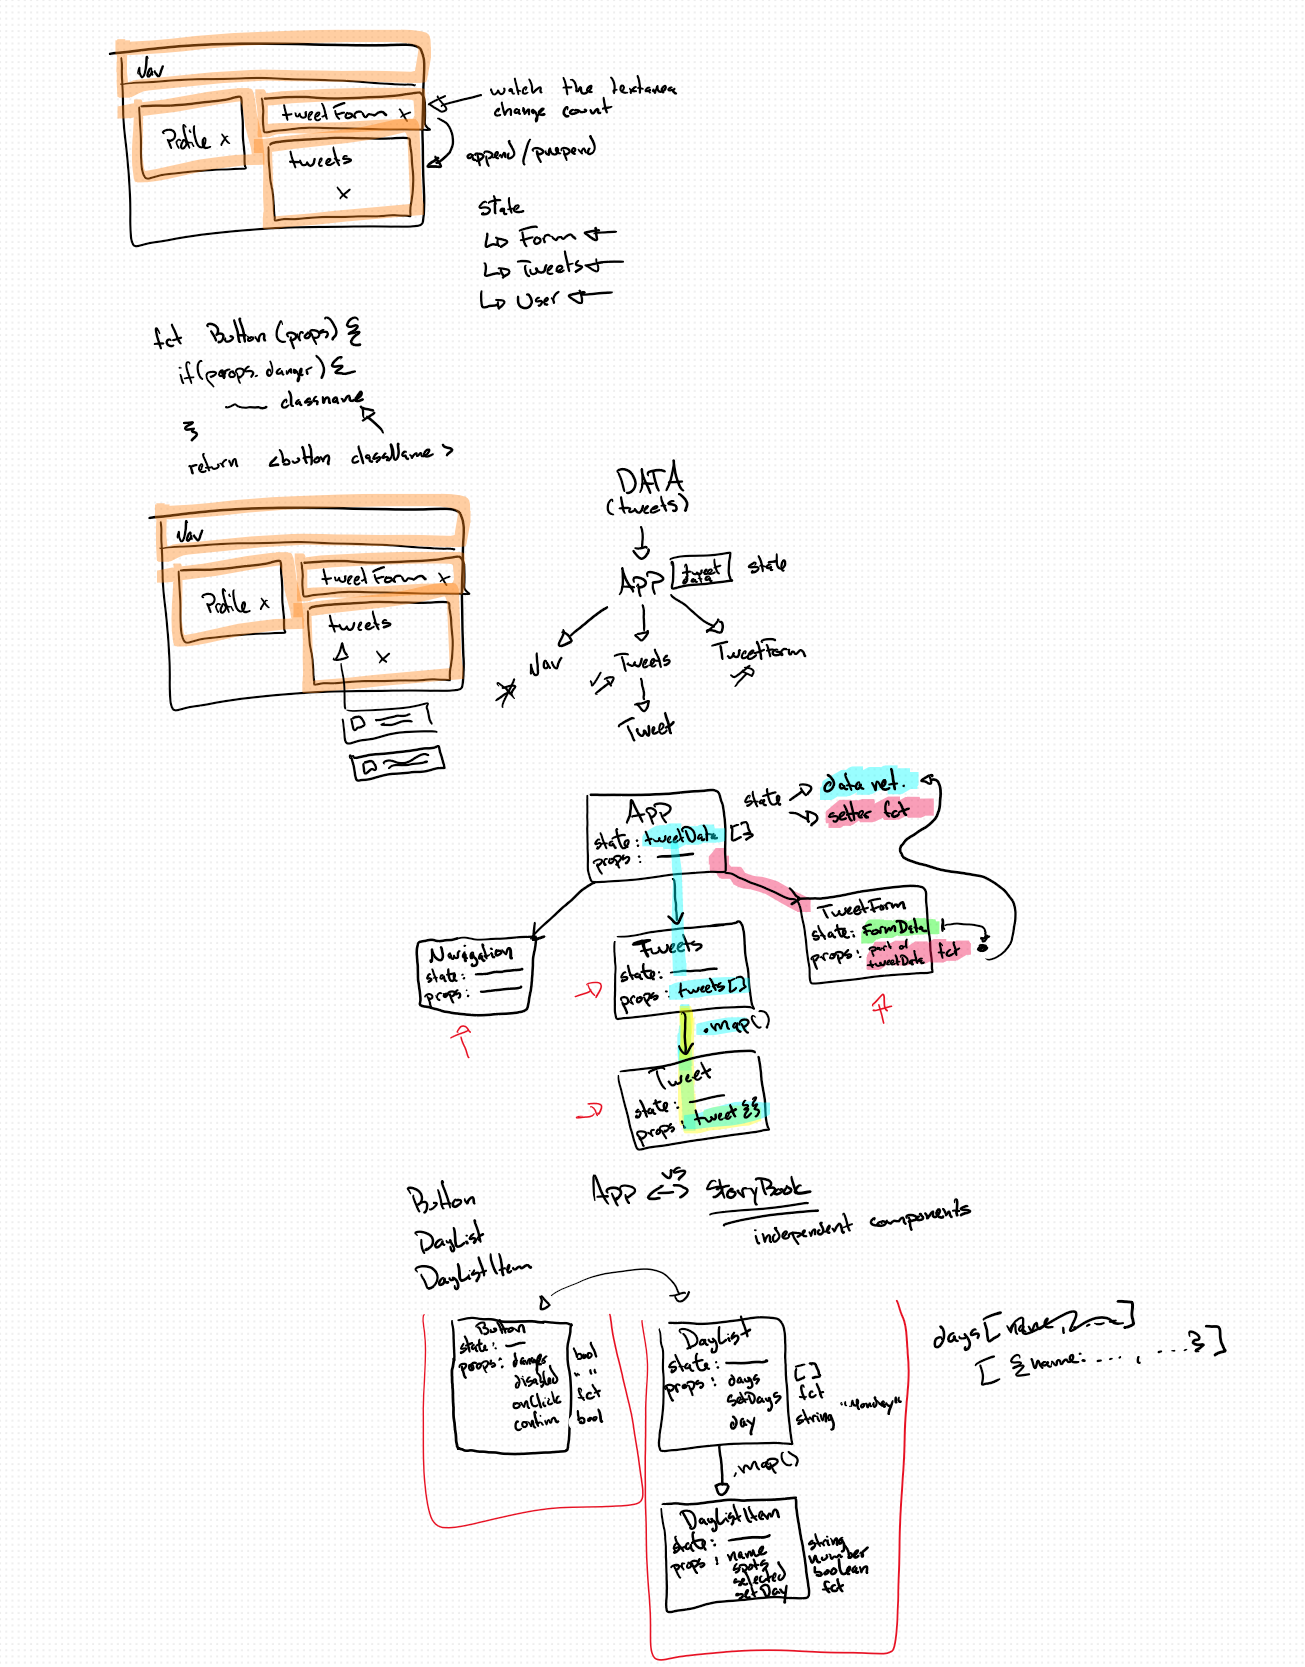 Nav
Profile x
tweetForm x
tweets
x
watch the textarea
change count
append/prepend
state
↳ Form ←
↳ Tweets ←
↳ User ←
fct Button (props) {
if(props.danger) {
classname
}
return <button className >
Nav
Profile x
tweetForm x
tweets
x
DATA
(tweets)
APP
tweet
data
state
Nav
Tweets
TweetForm
Tweet
state
data ret.
setter fct
App
state: tweetData []
props:
Navigation
state:
props:
Tweets
state:
props: tweets[]
TweetForm
state: FormData
props: part of
tweetData fct
.map()
Tweet
state:
props: tweet {}
Button
DayList
DayListItem
App <-> StoryBook
vs
independent components
Button
state:
props: danger bool
disabled " "
onClick fct
confirm bool
DayList
state:
props: days []
setDays fct
day string "Monday"
.map()
DayListItem
state:
props: name string
spots number
selected boolean
setDay fct
days [name, ....]
[ {name: ...., ....} ]